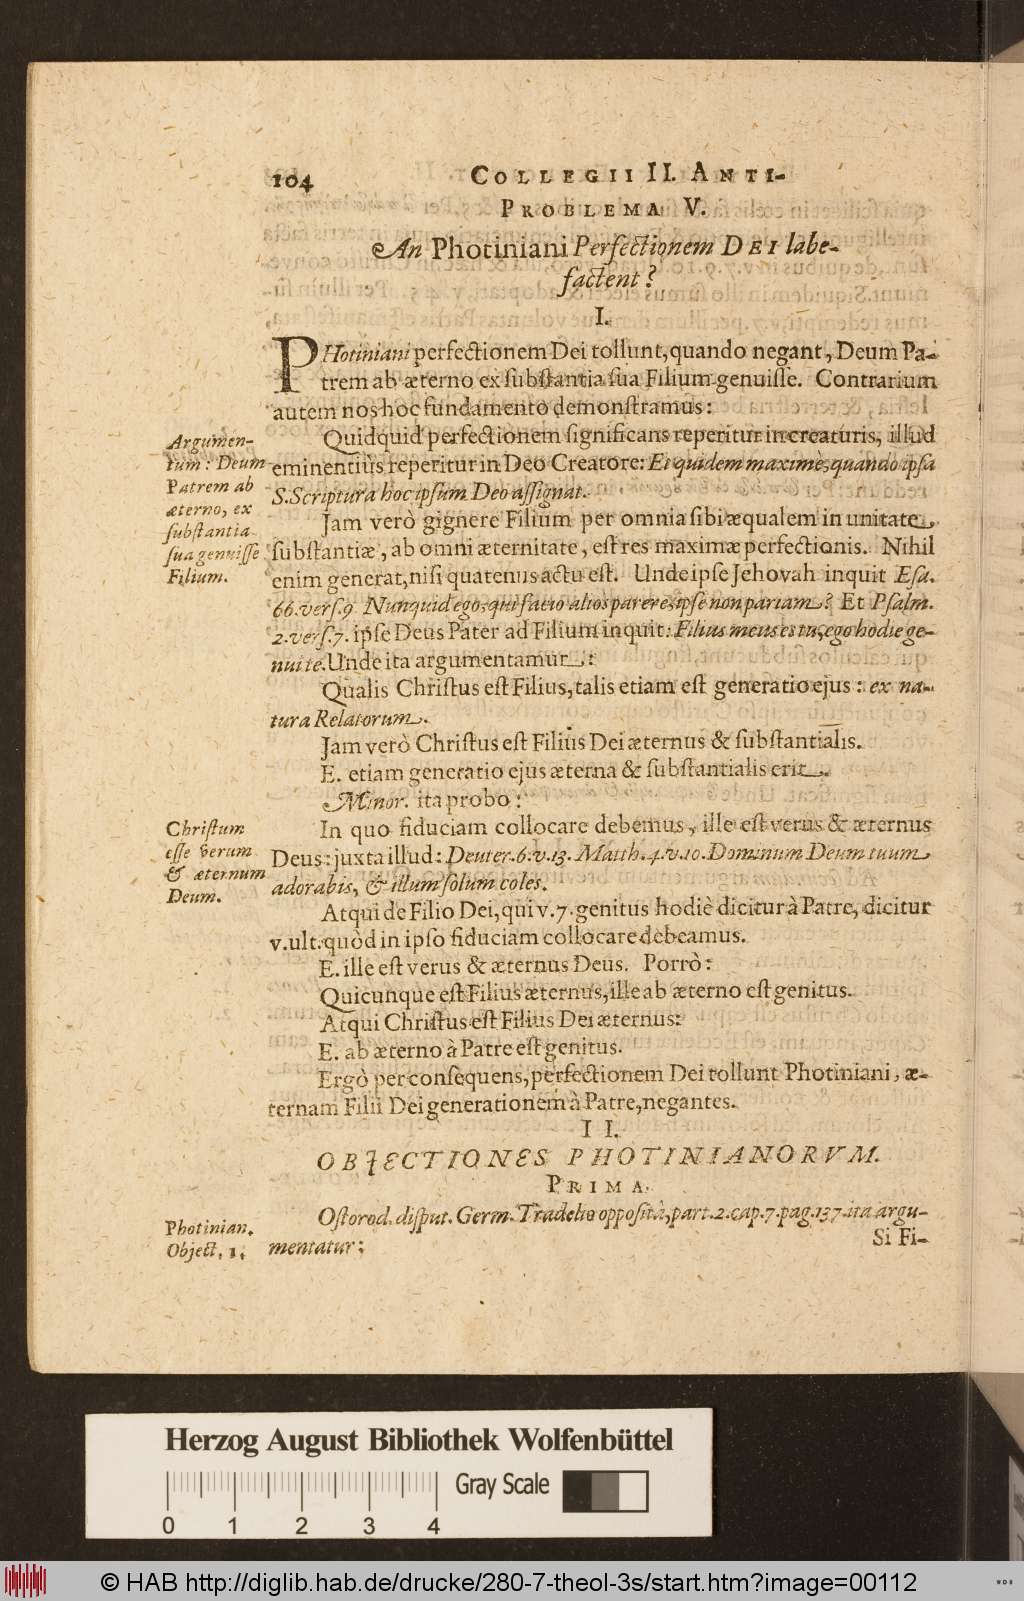 104 COLLEGII II. ANTI-
PROBLEMA V.
An Photiniani Perfectionem DEI labe-
factent?
I.
PHotiniani perfectionem Dei tollunt, quando negant, Deum Pa-
trem ab æterno ex ſubſtantia ſua Filium genuiſſe. Contrarium
autem nos hoc fundamento demonſtramus:
Argumen-
tum: Deum
Patrem ab
æterno, ex
ſubſtantia
ſua genuiſſe
Filium.
Quidquid perfectionem ſignificans reperitur in creaturis, illud
eminentiùs reperitur in Deo Creatore: Et quidem maximè, quando ipſa
S. Scriptura hoc ipſum Deo aſſignat.
Jam verò gignere Filium per omnia ſibi æqualem in unitate
ſubſtantiæ, ab omni æternitate, eſt res maximæ perfectionis. Nihil
enim generat, niſi quatenus actu eſt. Unde ipſe Jehovah inquit Eſa.
66. verſ. 9 Nunquid ego, qui facio alios parere, ipſe non pariam? Et Pſalm.
2. verſ. 7. ipſe Deus Pater ad Filium inquit: Filius meus es tu, ego hodie ge-
nui te. Unde ita argumentamur:
Qualis Chriſtus eſt Filius, talis etiam eſt generatio ejus: ex na-
tura Relatorum.
Jam verò Chriſtus eſt Filius Dei æternus & ſubſtantialis.
E. etiam generatio ejus æterna & ſubſtantialis erit.
Minor. ita probo:
Chriſtum
eſſe verum
& æternum
Deum.
In quo fiduciam collocare debemus, ille eſt verus & æternus
Deus: juxta illud: Deuter. 6. v. 13. Matth. 4. v. 10. Dominum Deum tuum
adorabis, & illum ſolum coles.
Atqui de Filio Dei, qui v. 7. genitus hodiè dicitur à Patre, dicitur
v. ult. quòd in ipſo fiduciam collocare debeamus.
E. ille eſt verus & æternus Deus. Porrò:
Quicunque eſt Filius æternus, ille ab æterno eſt genitus.
Atqui Chriſtus eſt Filius Dei æternus:
E. ab æterno à Patre eſt genitus.
Ergò per conſequens, perfectionem Dei tollunt Photiniani, æ-
ternam Filii Dei generationem à Patre, negantes.
II.
OBJECTIONES PHOTINIANORVM.
PRIMA.
Photinian.
Object. 1.
Oſtorod. diſput. Germ. Tradelio oppoſitâ, part. 2. cap. 7. pag. 137. ita argu-
mentatur:
Si Fi-
Herzog August Bibliothek Wolfenbüttel
Gray Scale
0 1 2 3 4
© HAB http://diglib.hab.de/drucke/280-7-theol-3s/start.htm?image=00112